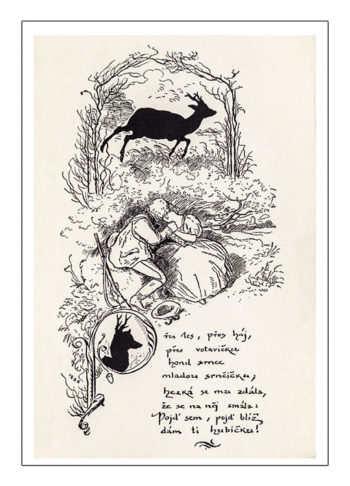 řes les, přes háj,
přes votavičku
honil srnec
mladou srnčičku;
hezká se mu zdála,
že se na něj smála:
Pojď sem, pojď blíž
dám ti hubičku!